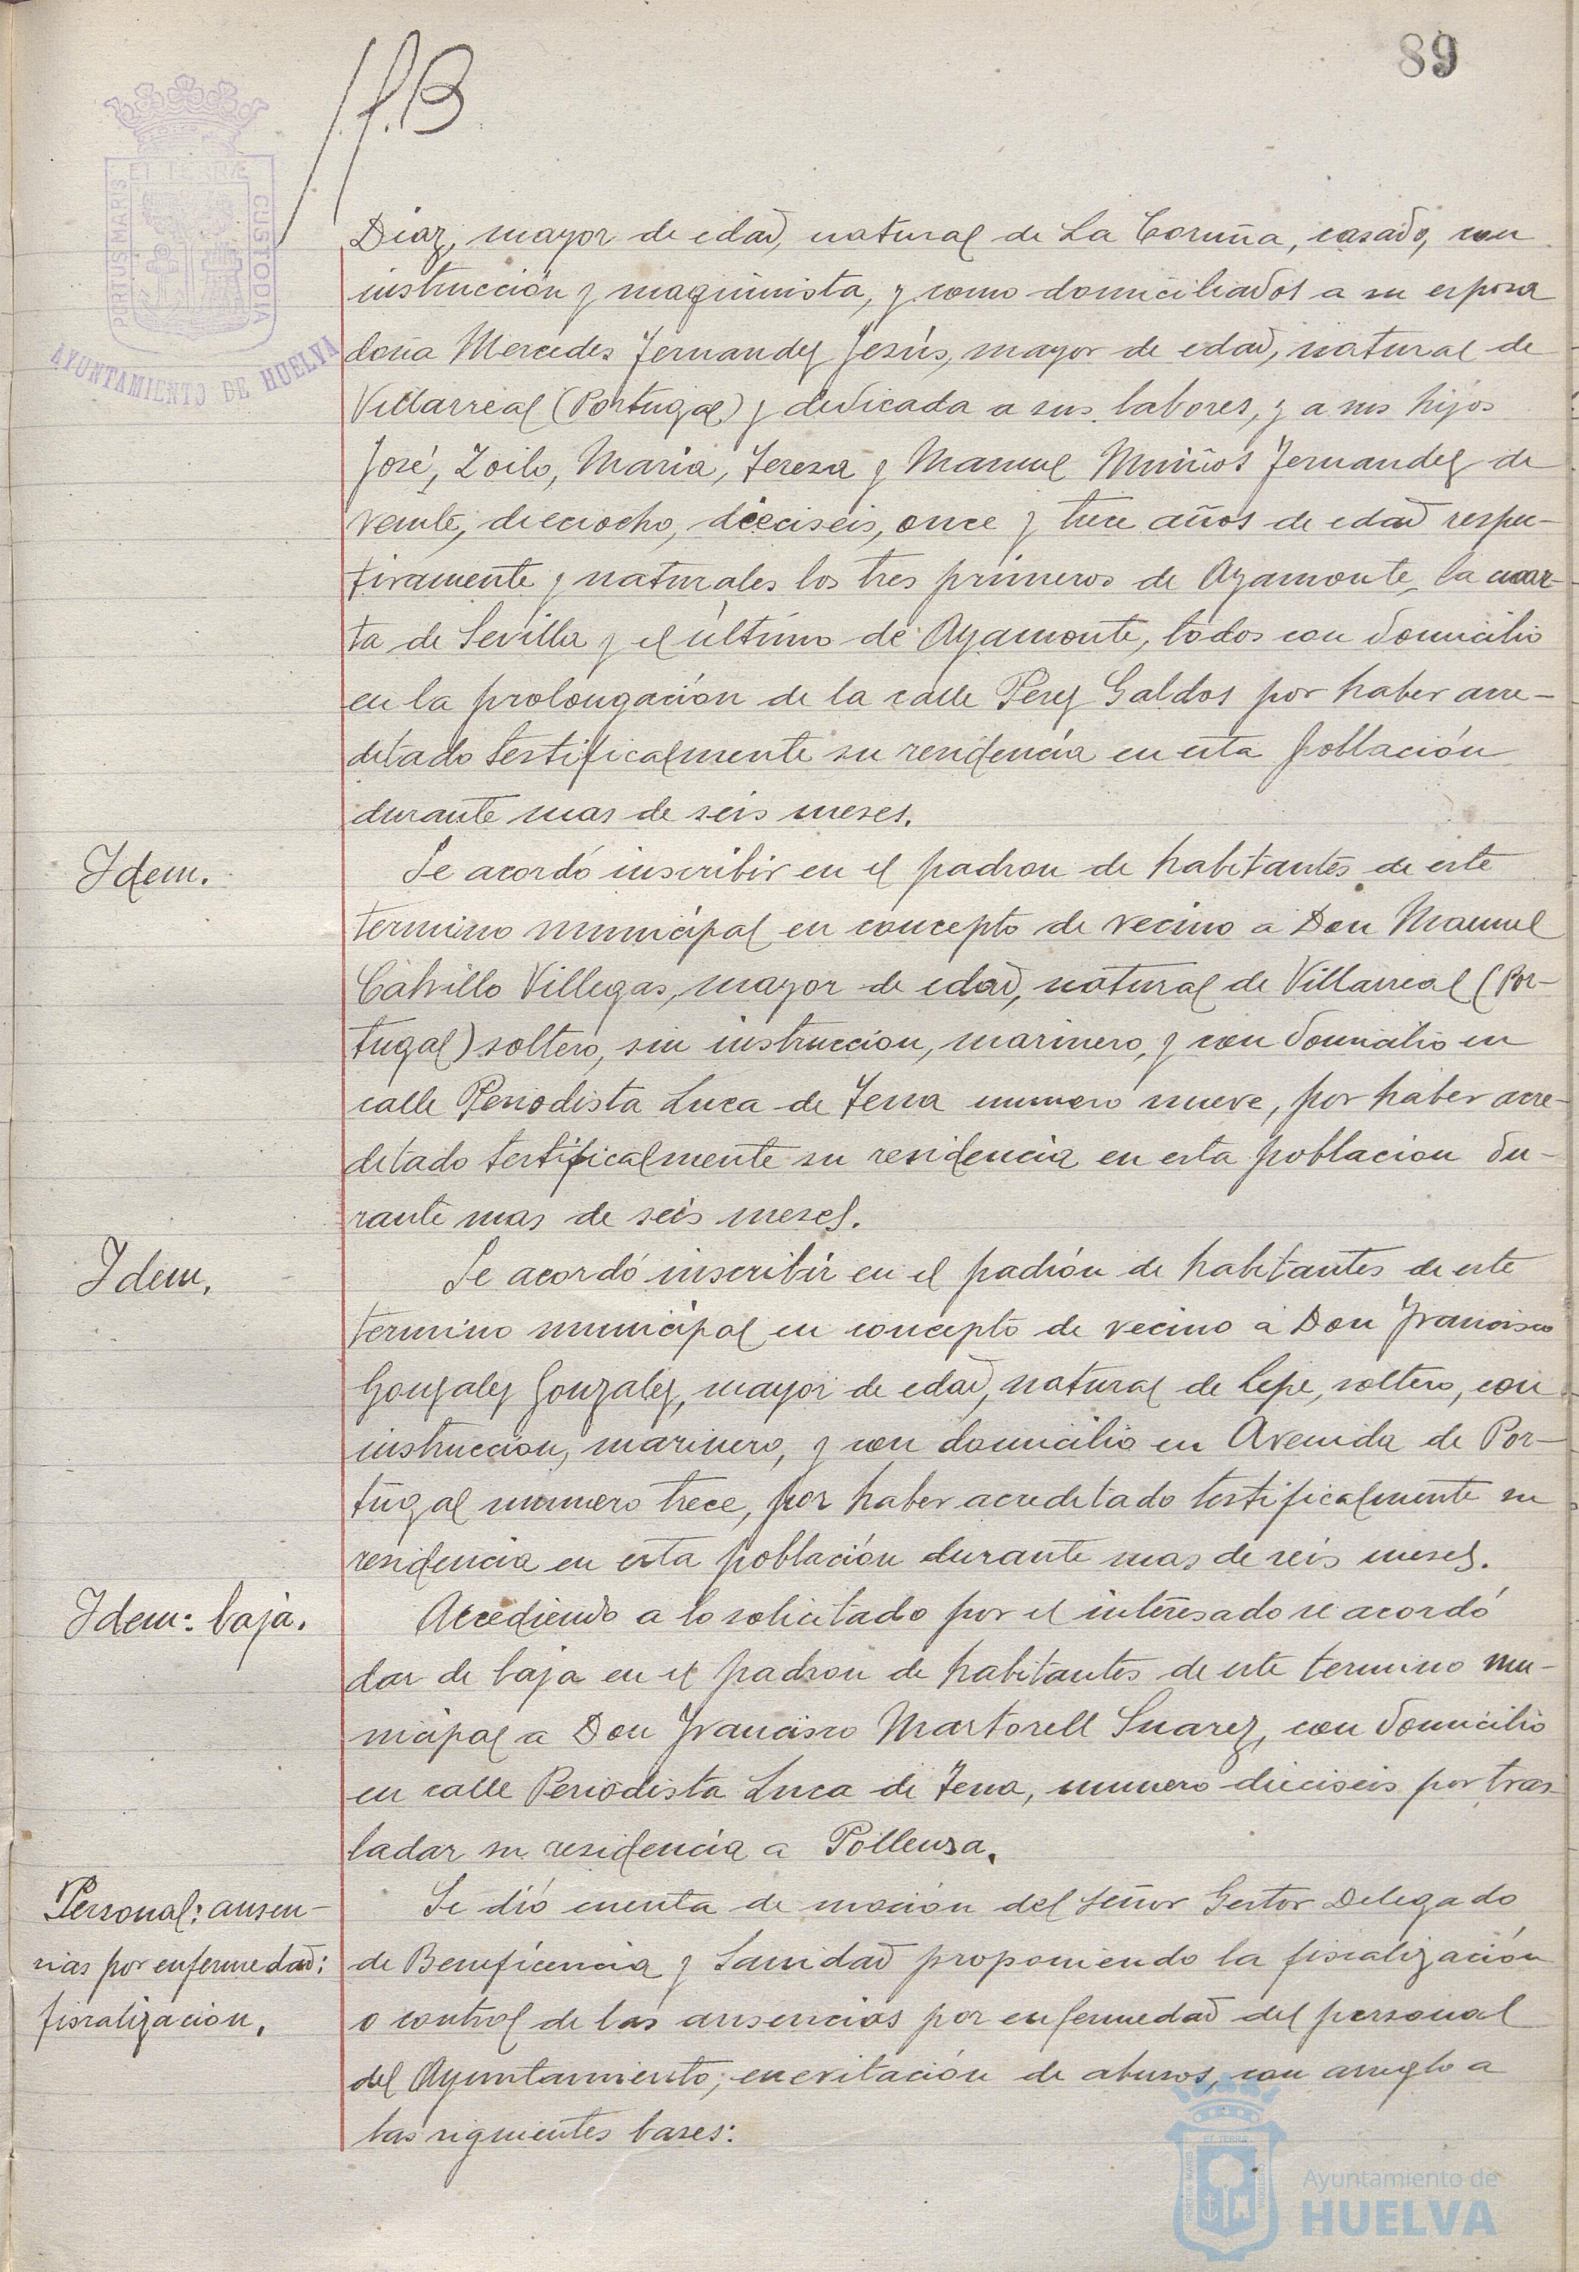 89
ET TERRÆ
PORTUS MARIS
CUSTODIA
AYUNTAMIENTO DE HUELVA
Diaz, mayor de edad, natural de La Coruña, casado, con
instrucción y maquinista, y como domiciliados a su esposa
doña Mercedes Fernandez Jesús, mayor de edad, natural de
Villarreal (Portugal) y dedicada a sus labores, y a sus hijos
José, Zoilo, Maria, Teresa y Manuel Muiños Fernandez de
veinte, dieciocho, dieciseis, once y trece años de edad respec-
tivamente y naturales los tres primeros de Ayamonte, la cuar-
ta de Sevilla y el último de Ayamonte, todos con domicilio
en la prolongación de la calle Perez Galdos por haber acre-
ditado testificalmente su residencia en esta población
durante mas de seis meses.
Idem.
Se acordó inscribir en el padron de habitantes de este
termino municipal en concepto de vecino a Don Manuel
Calvillo Villegas, mayor de edad, natural de Villarreal (Por-
tugal) soltero, sin instruccion, marinero, y con domicilio en
calle Periodista Luca de Tena numero nueve, por haber acre-
ditado testificalmente su residencia en esta poblacion du-
rante mas de seis meses.
Idem.
Se acordó inscribir en el padrón de habitantes de este
termino municipal en concepto de vecino a Don Francisco
Gonzalez Gonzalez, mayor de edad, natural de Lepe, soltero, con
instruccion, marinero, y con domicilio en Avenida de Por-
tugal numero trece, por haber acreditado testificalmente su
residencia en esta población durante mas de seis meses.
Idem: baja.
Accediendo a lo solicitado por el interesado se acordó
dar de baja en el padron de habitantes de este termino mu-
nicipal a Don Francisco Martorell Suarez, con domicilio
en calle Periodista Luca de Tena, numero dieciseis por tras-
ladar su residencia a Pollensa.
Personal: ausen-
cias por enfermedad:
fiscalizacion.
Se dió cuenta de moción del señor Gestor Delegado
de Beneficencia y Sanidad proponiendo la fiscalización
o control de las ausencias por enfermedad del personal
del Ayuntamiento, en evitación de abusos, con arreglo a
las siguientes bases:
Ayuntamiento de
HUELVA